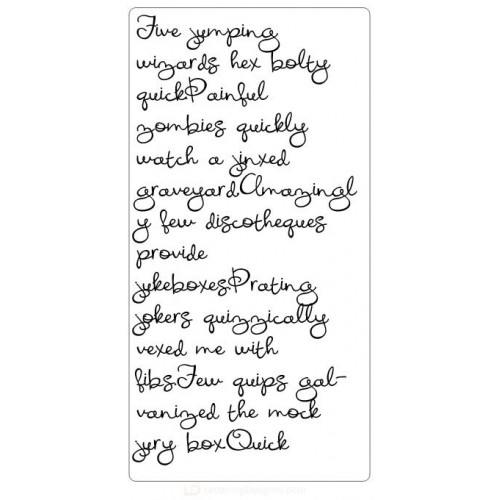 Five jumping
wizards hex bolty
quick.Painful
zombies quickly
watch a jinxed
graveyard.Amazingl
y few discotheques
provide
jukeboxes.Prating
jokers quizzically
vexed me with
fibs.Few quips gal-
vanized the mock
jury box.Quick